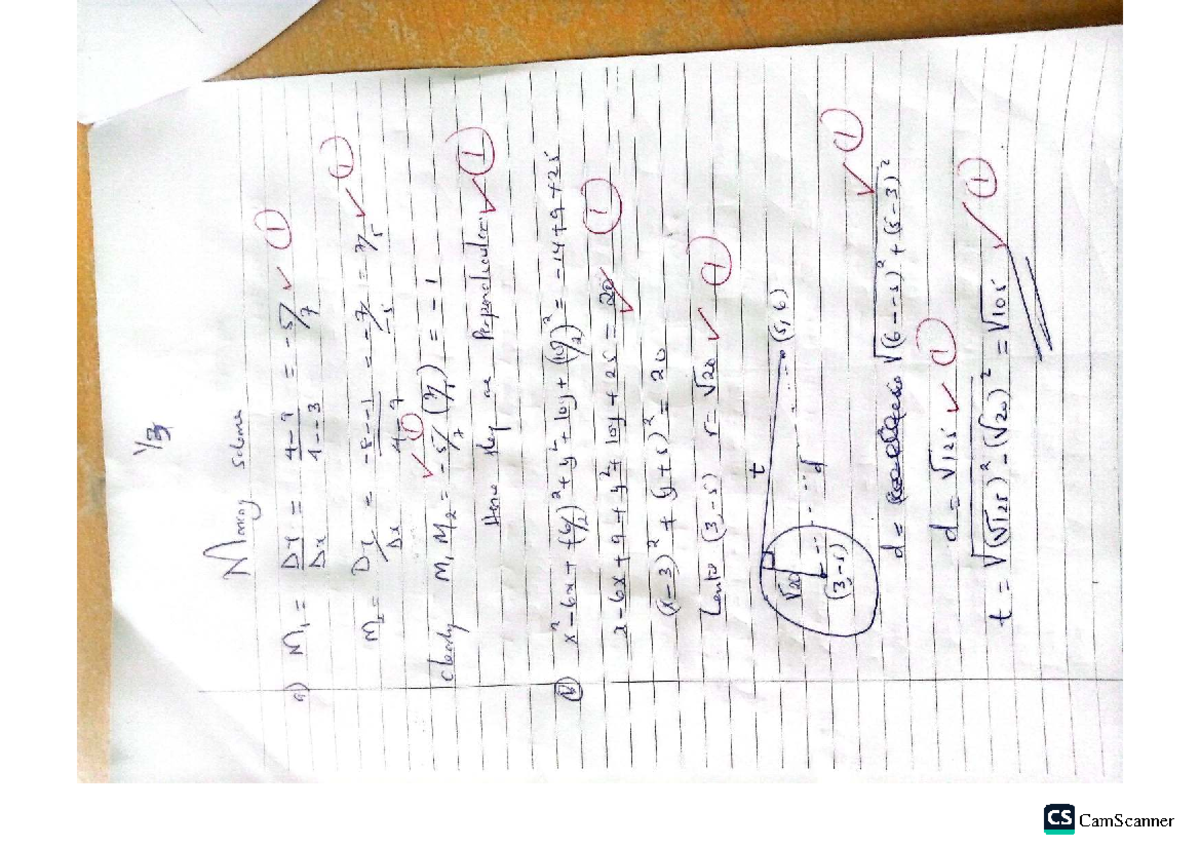 1/3
Marking Scheme
a) M₁ = Dy/Dx = 4-9/4--3 = -5/7 ✓ (1)
M₂ = Dy/Dx = -8--1/4-9 = -7/-5 = 7/5 ✓ (1)
✓ (1)
Clearly M₁ M₂ = -5/7 (7/5) = -1
Hence they are Perpendicular ✓ (1)
(b) x² - 6x + (6/2)² + y² + 10y + (10/2)² = -14 + 9 + 25
x - 6x + 9 + y² + 10y + 25 = 20 ✓ (1)
(x-3)² + (y+5)² = 20
(3, -5) r = √20 ✓ (1)
t
(5, 6)
√20
d
(3, -5)
d = √(6--5)² + (5-3)² ✓ (1)
d = √125 ✓ (1)
t = √(√125)² - (√20)² = √105 ✓ (1)
CS CamScanner